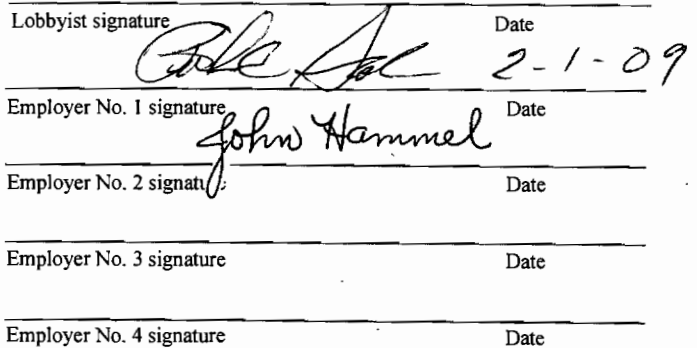 Lobbyist signature Date
2-1-09
Employer No. 1 signature Date
John Hammel
Employer No. 2 signatu Date
Employer No. 3 signature Date
Employer No. 4 signature Date